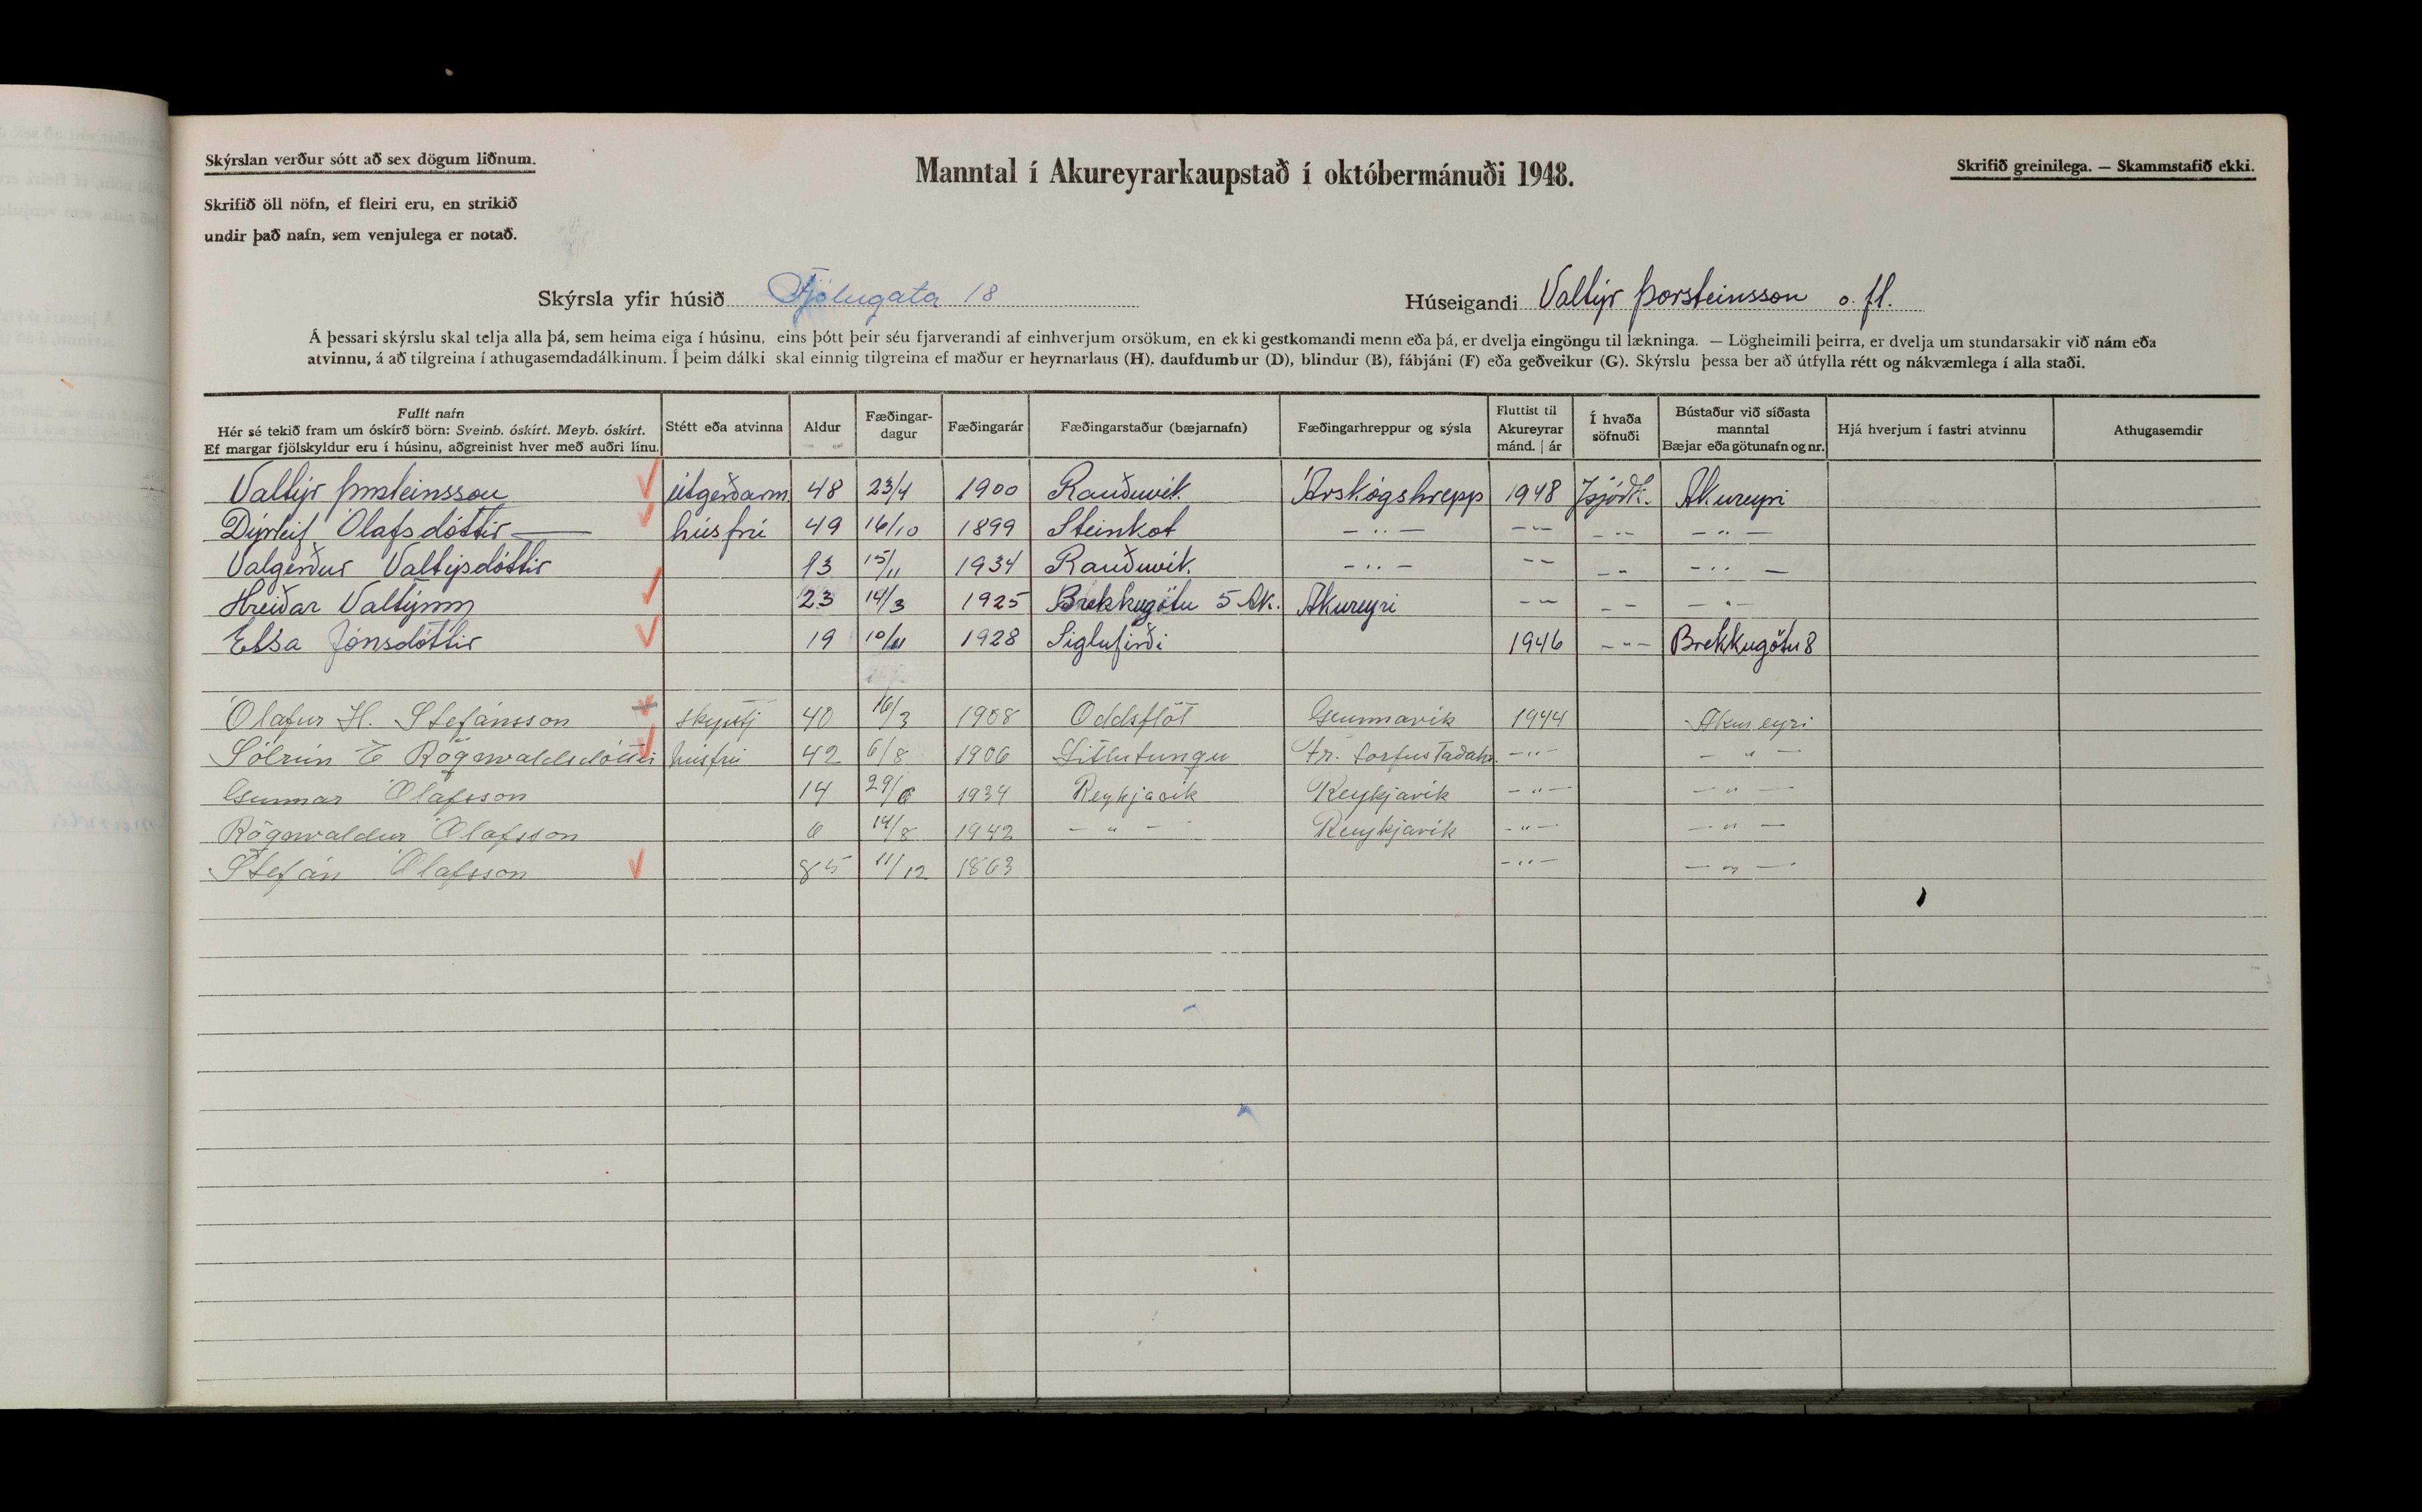 Skýrslan verður sótt að sex dögum liðnum.
Manntal í Akureyrarkaupstað í októbermánuði 1948.
Skrifið greinilega. — Skammstafið ekki.
Skrifið öll nöfn, ef fleiri eru, en strikið
undir það nafn, sem venjulega er notað.
Skýrsla yfir húsið Fjólugata 18 Húseigandi Valtýr Þorsteinsson o. fl.
Á þessari skýrslu skal telja alla þá, sem heima eiga í húsinu, eins þótt þeir séu fjarverandi af einhverjum orsökum, en ekki gestkomandi menn eða þá, er dvelja eingöngu til lækninga. — Lögheimili þeirra, er dvelja um stundarsakir við nám eða
atvinnu, á að tilgreina í athugasemdadálkinum. Í þeim dálki skal einnig tilgreina ef maður er heyrnarlaus (H), daufdumbur (D), blindur (B), fábjáni (F) eða geðveikur (G). Skýrslu þessa ber að útfylla rétt og nákvæmlega í alla staði.
Fullt nafn
Hér sé tekið fram um óskírð börn: Sveinb. óskírt. Meyb. óskírt.
Ef margar fjölskyldur eru í húsinu, aðgreinist hver með auðri línu.
Stétt eða atvinna
Aldur
Fæðingar-
dagur
Fæðingarár
Fæðingarstaður (bæjarnafn)
Fæðingarhreppur og sýsla
Fluttist til
Akureyrar
mánd. | ár
Í hvaða
söfnuði
Bústaður við síðasta
manntal
Bæjar eða götunafn og nr.
Hjá hverjum í fastri atvinnu
Athugasemdir
Valtýr Þorsteinsson útgerðarm 48 23/4 1900 Rauðuvík Árskógshrepp 1948 Þjóðk. Akureyri
Dýrleif Ólafsdóttir húsfrú 49 16/10 1899 Steinkot — " — — " — — " — — " —
Valgerður Valtýsdóttir 13 15/11 1934 Rauðuvík — " — — " — — " — — " —
Hreiðar Valtýsson 23 14/3 1925 Brekkugötu 5 Ak. Akureyri — " — — " — — " —
Elsa Jónsdóttir 19 10/11 1928 Siglufirði 1946 — " — Brekkugötu 8
Ólafur H. Stefánsson 40 16/3 1908 Oddsflöt Grunnavík 1944 Akureyri
Sólrún E Rögnvaldsdóttir húsfrú 42 6/8 1906 Litlutungu Fr. Torfustaðahr. — " — — " —
Gunnar Ólafsson 14 29/6 1934 Reykjavík Reykjavík — " — — " —
Rögnvaldur Ólafsson 6 14/8 1942 — " — Reykjavík — " — — " —
Stefán Ólafsson 85 11/12 1863 — " — — " —